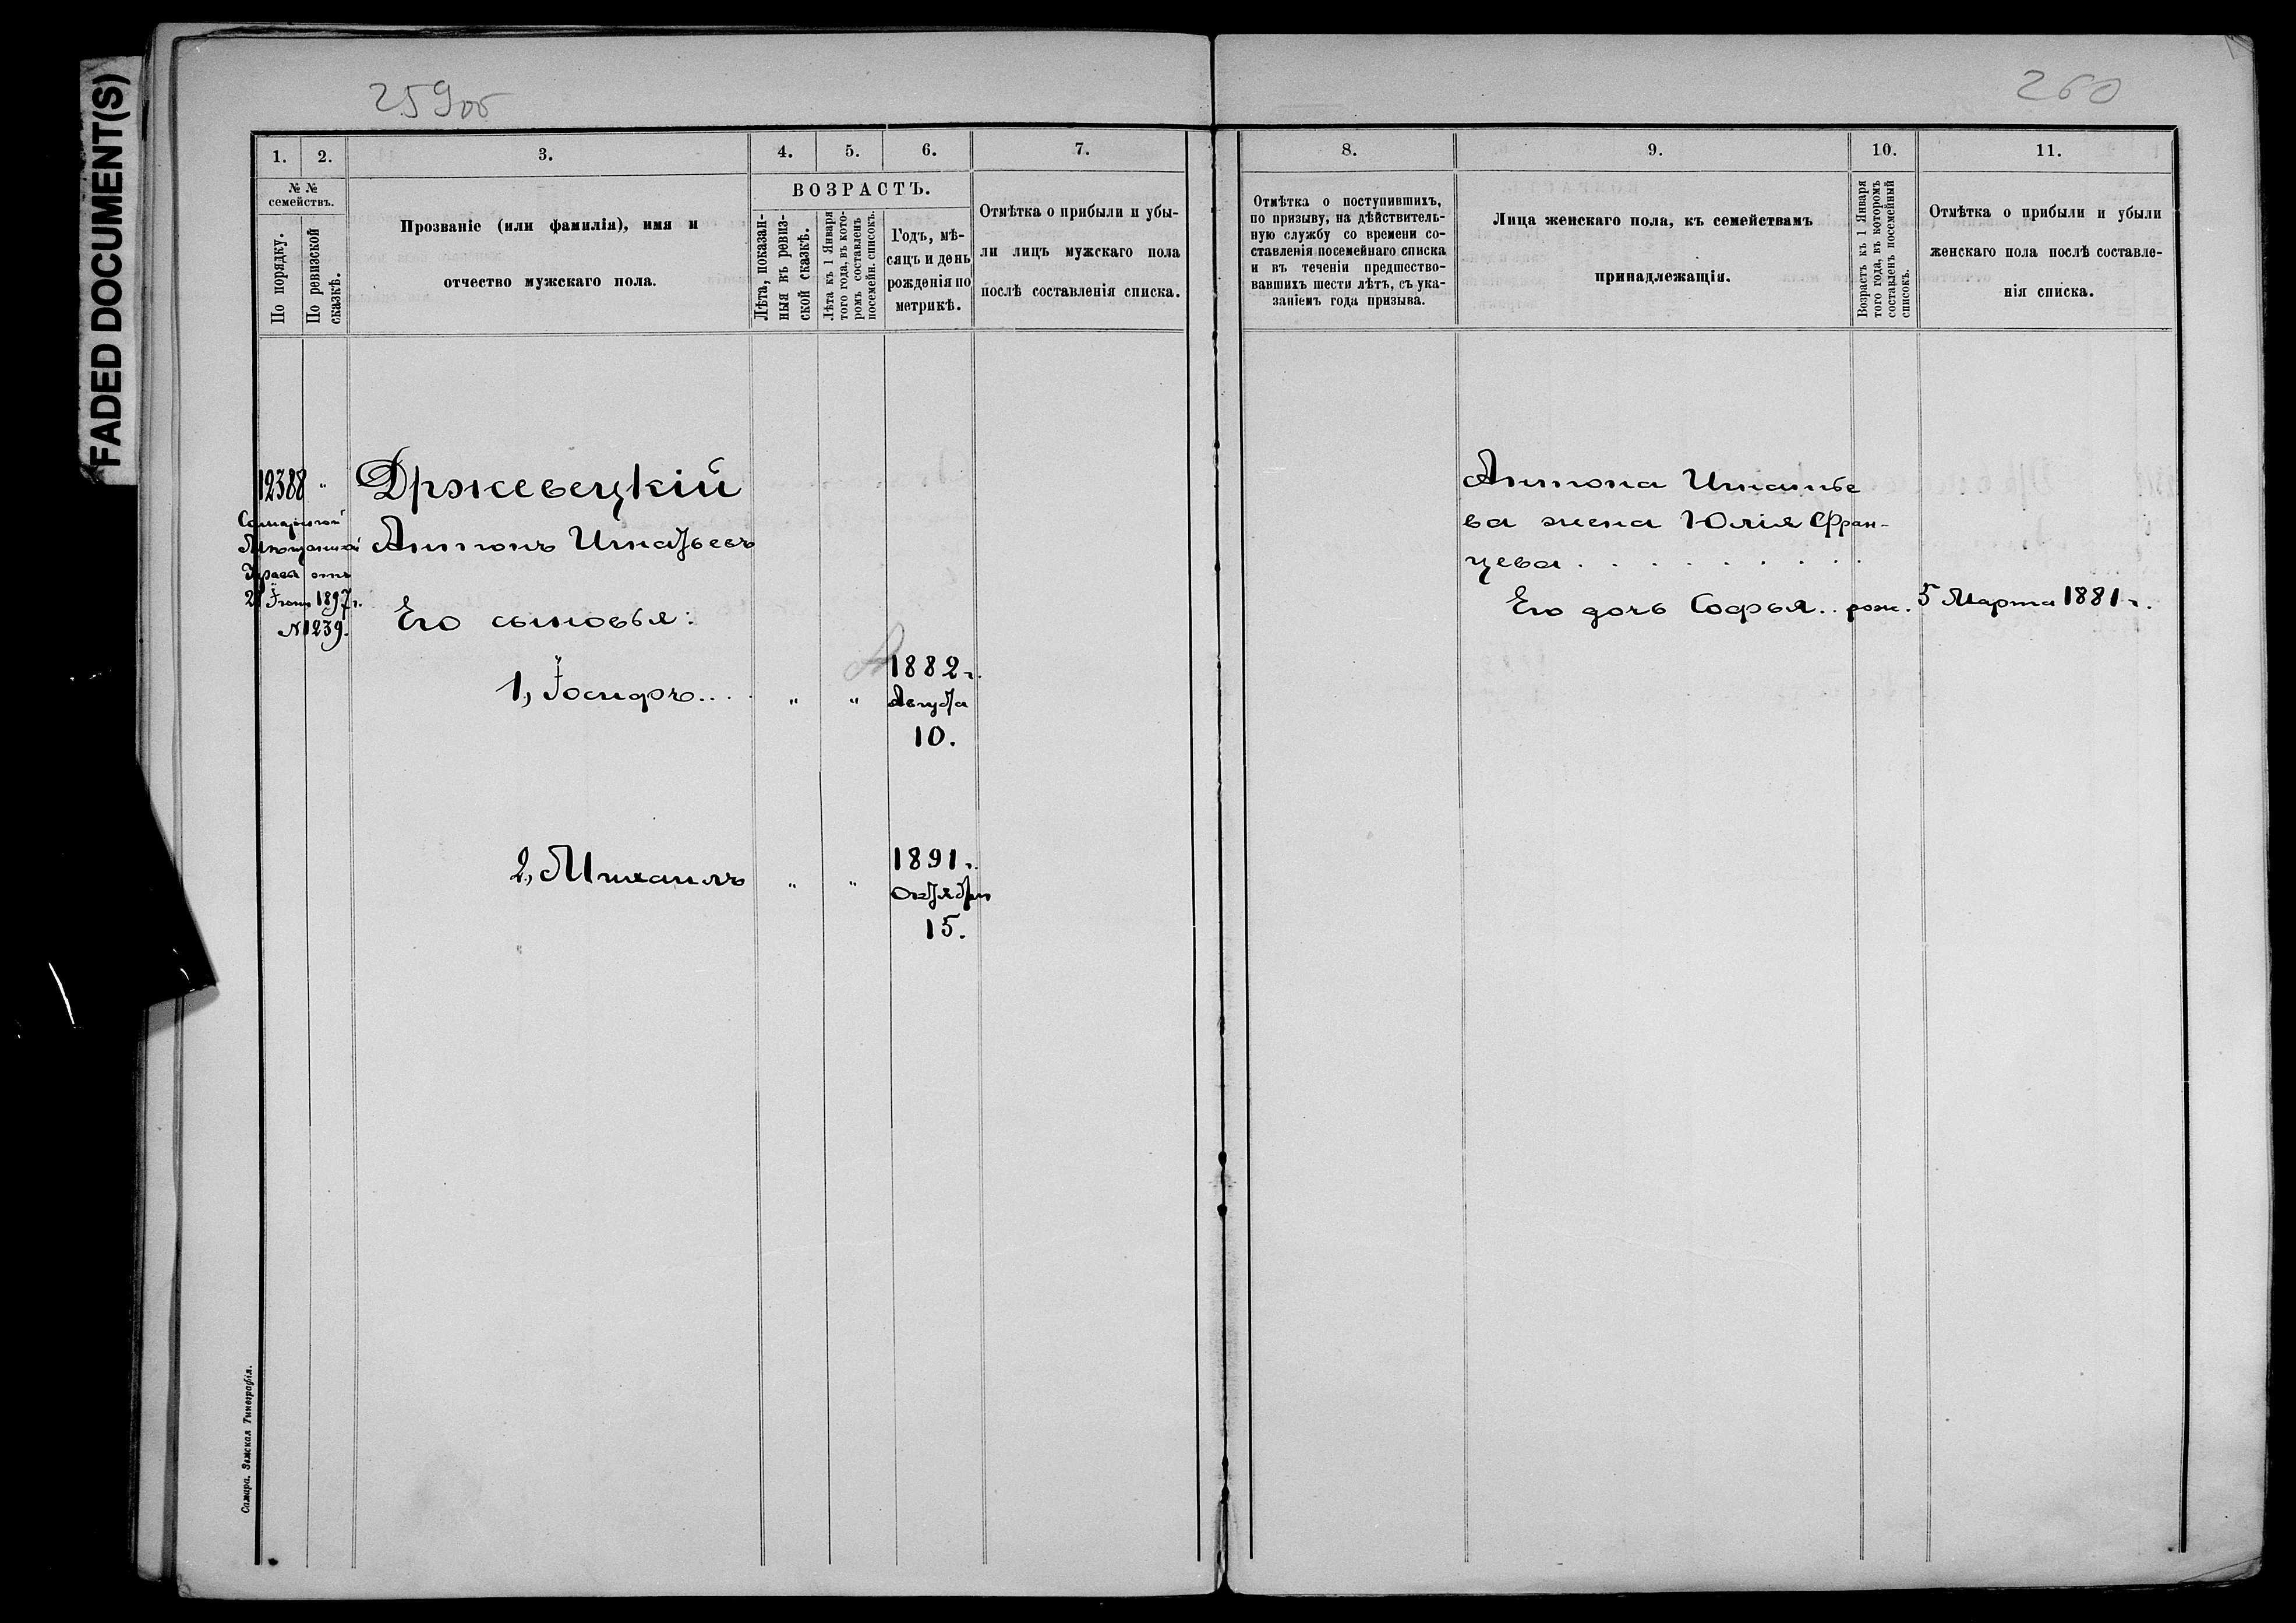 FADED DOCUMENT(S)
259об
260
1. 2. 3. 4. 5. 6. 7.
№ №
семействъ.
По порядку.
По ревизской
сказкѣ.
Прозваніе (или фамилія), имя и
отчество мужскаго пола.
ВОЗРАСТЪ.
Лѣта, показан-
ныя въ ревиз-
ской сказкѣ.
Лѣта къ 1 Января
того года, въ кото-
ромъ составленъ
посемейн. списокъ.
Годъ, мѣ-
сяцъ и день
рожденія по
метрикѣ.
Отмѣтка о прибыли и убы-
ли лицъ мужскаго пола
послѣ составленія списка.
12388 " Држевецкій
Самарской
Мѣщанской
Управы отъ
1897 г.
№ 1239.
Антонъ Игнатьевъ
Его сыновья:
1, Іосифъ.... " " 1882 г.
Августа
10.
2, Михаилъ " " 1891 г.
Октября
15.
Самара. Земская Типографія.
8. 9. 10. 11.
Отмѣтка о поступившихъ,
по призыву, на дѣйствитель-
ную службу со времени со-
ставленія посемейнаго списка
и въ теченіи предшество-
вавшихъ шести лѣтъ, съ ука-
заніемъ года призыва.
Лица женскаго пола, къ семействамъ
принадлежащія.
Возрастъ къ 1 Января
того года, въ которомъ
составленъ посемейный
списокъ.
Отмѣтка о прибыли и убыли
женскаго пола послѣ составле-
нія списка.
Антона Игнатье
ва жена Юлія Фран-
цева . . . . . . . . .
Его дочь Софья.. рож. 5 Марта 1881 г.